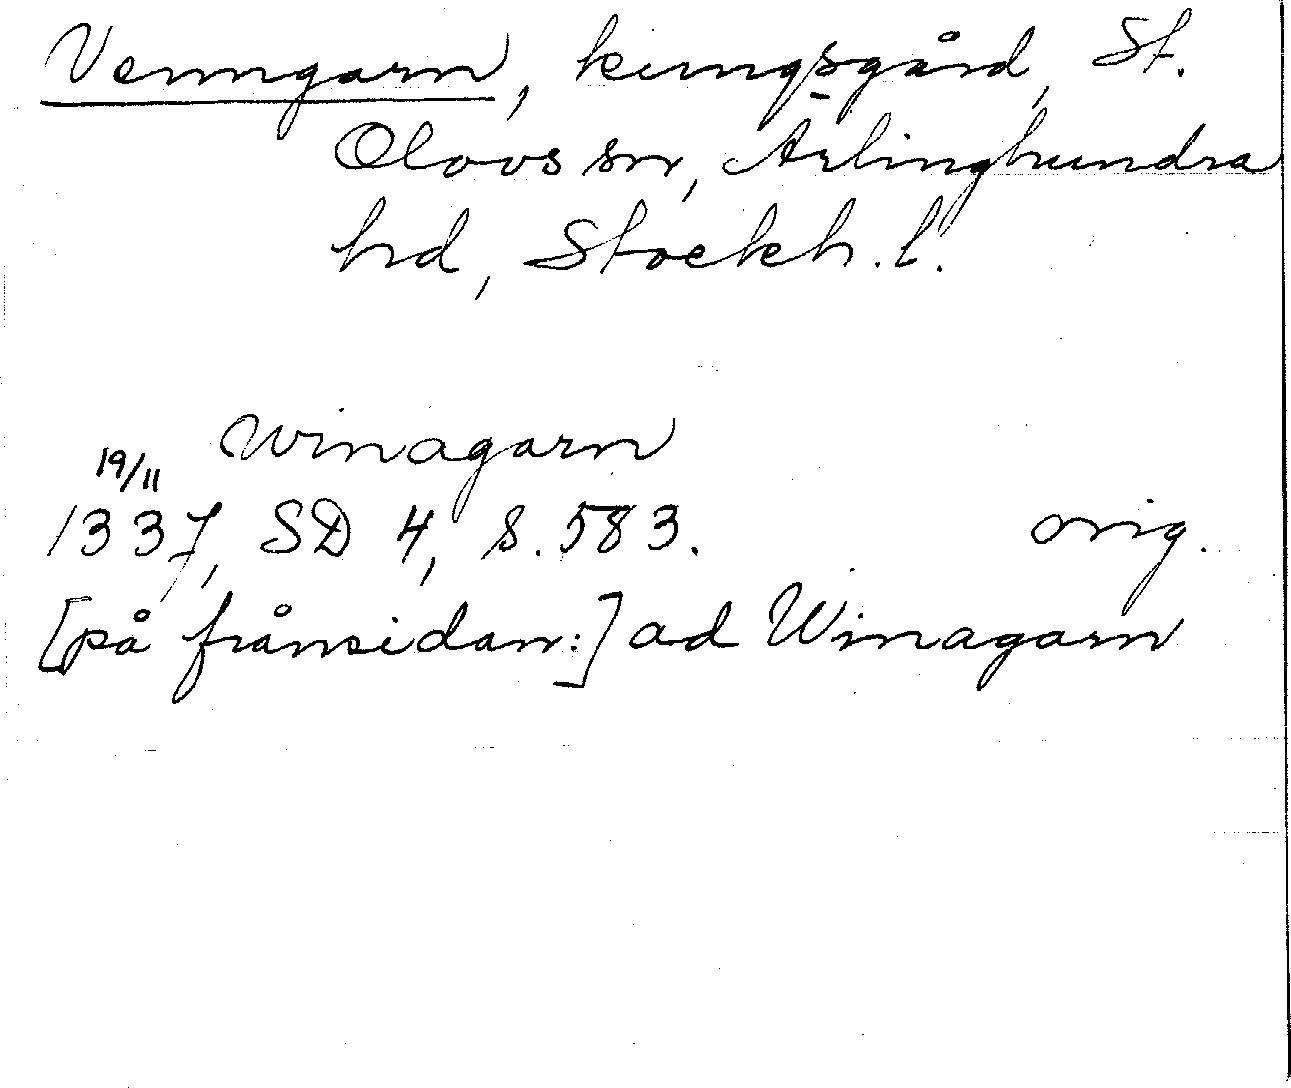 Venngarn, kungsgård, St.
Olovs sn, Ärlinghundra
hd, Stockh. l.
Winagarn
19/11
1337, SD 4, s. 583. orig.
[på frånsidan:] ad Winagarn